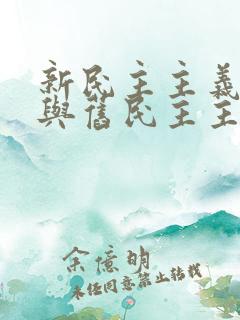 新民主主義
與舊民主主
余憶明
未经同意禁止转载